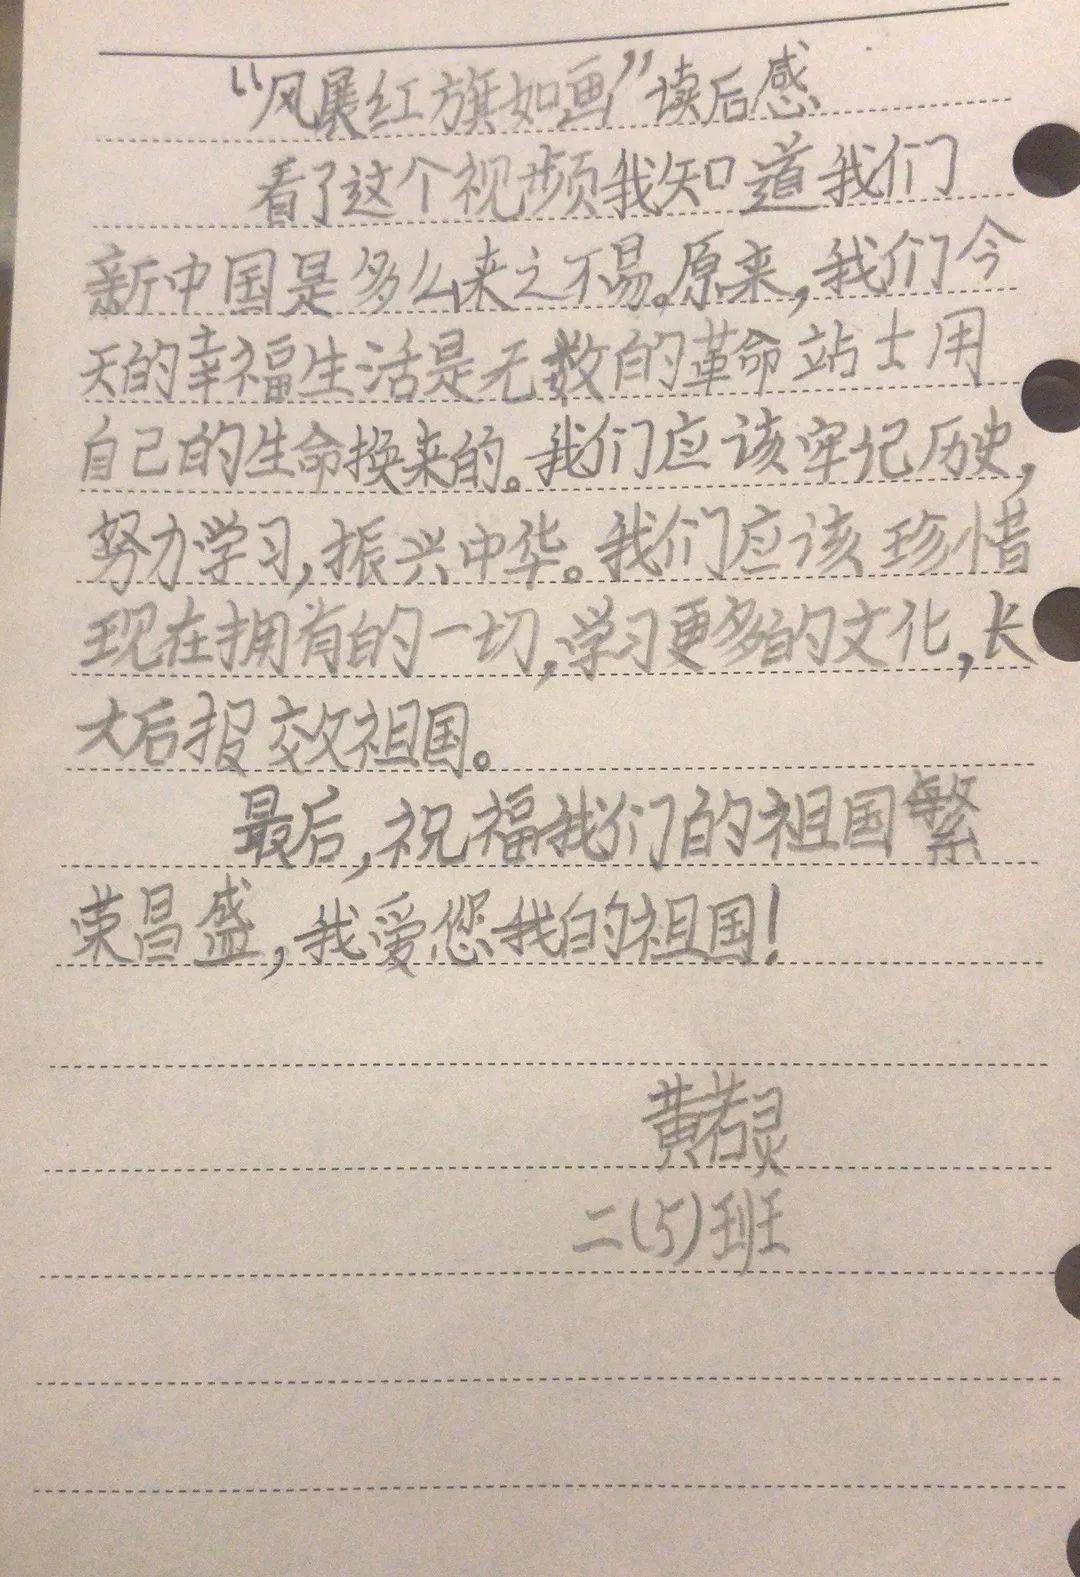 “风展红旗如画”读后感
看了这个视频我知道我们
新中国是多么来之不易。原来，我们今
天的幸福生活是无数的革命站士用
自己的生命换来的。我们应该牢记历史，
努力学习，振兴中华。我们应该珍惜
现在拥有的一切，学习更多的文化，长
大后报效祖国。
最后，祝福我们的祖国繁
荣昌盛，我爱您我的祖国！
黄若灵
二(5)班